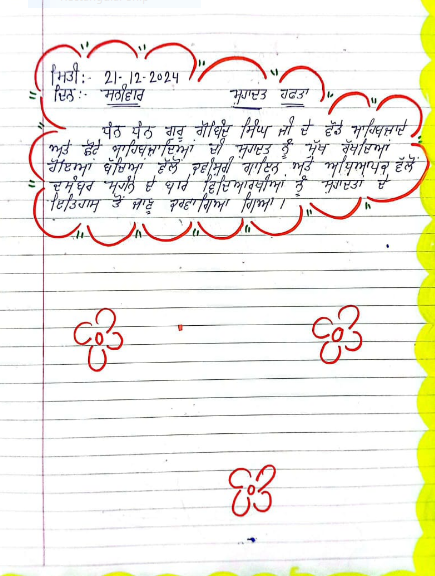 ਮਿਤੀ:- 21-12-2024
ਦਿਨ:- ਸ਼ਨੀਵਾਰ ਸ਼ਹਾਦਤ ਹਫਤਾ
ਧੰਨ ਧੰਨ ਗੁਰੂ ਗੋਬਿੰਦ ਸਿੰਘ ਜੀ ਦੇ ਵੱਡੇ ਸਾਹਿਬਜ਼ਾਦੇ
ਅਤੇ ਛੋਟੇ ਸਾਹਿਬਜ਼ਾਦਿਆਂ ਦੀ ਸ਼ਹਾਦਤ ਨੂੰ ਮੁੱਖ ਰੱਖਦਿਆਂ
ਹੋਇਆਂ ਬੱਚਿਆਂ ਵੱਲੋਂ ਕਵੀਸ਼ਰੀ ਗਾਇਨ ਅਤੇ ਅਧਿਆਪਕ ਵੱਲੋਂ
ਦਸੰਬਰ ਮਹੀਨੇ ਦੇ ਬਾਰੇ ਵਿਦਿਆਰਥੀਆਂ ਨੂੰ ਸ਼ਹਾਦਤਾਂ ਦੇ
ਇਤਿਹਾਸ ਤੋਂ ਜਾਣੂ ਕਰਵਾਇਆ ਗਿਆ ।